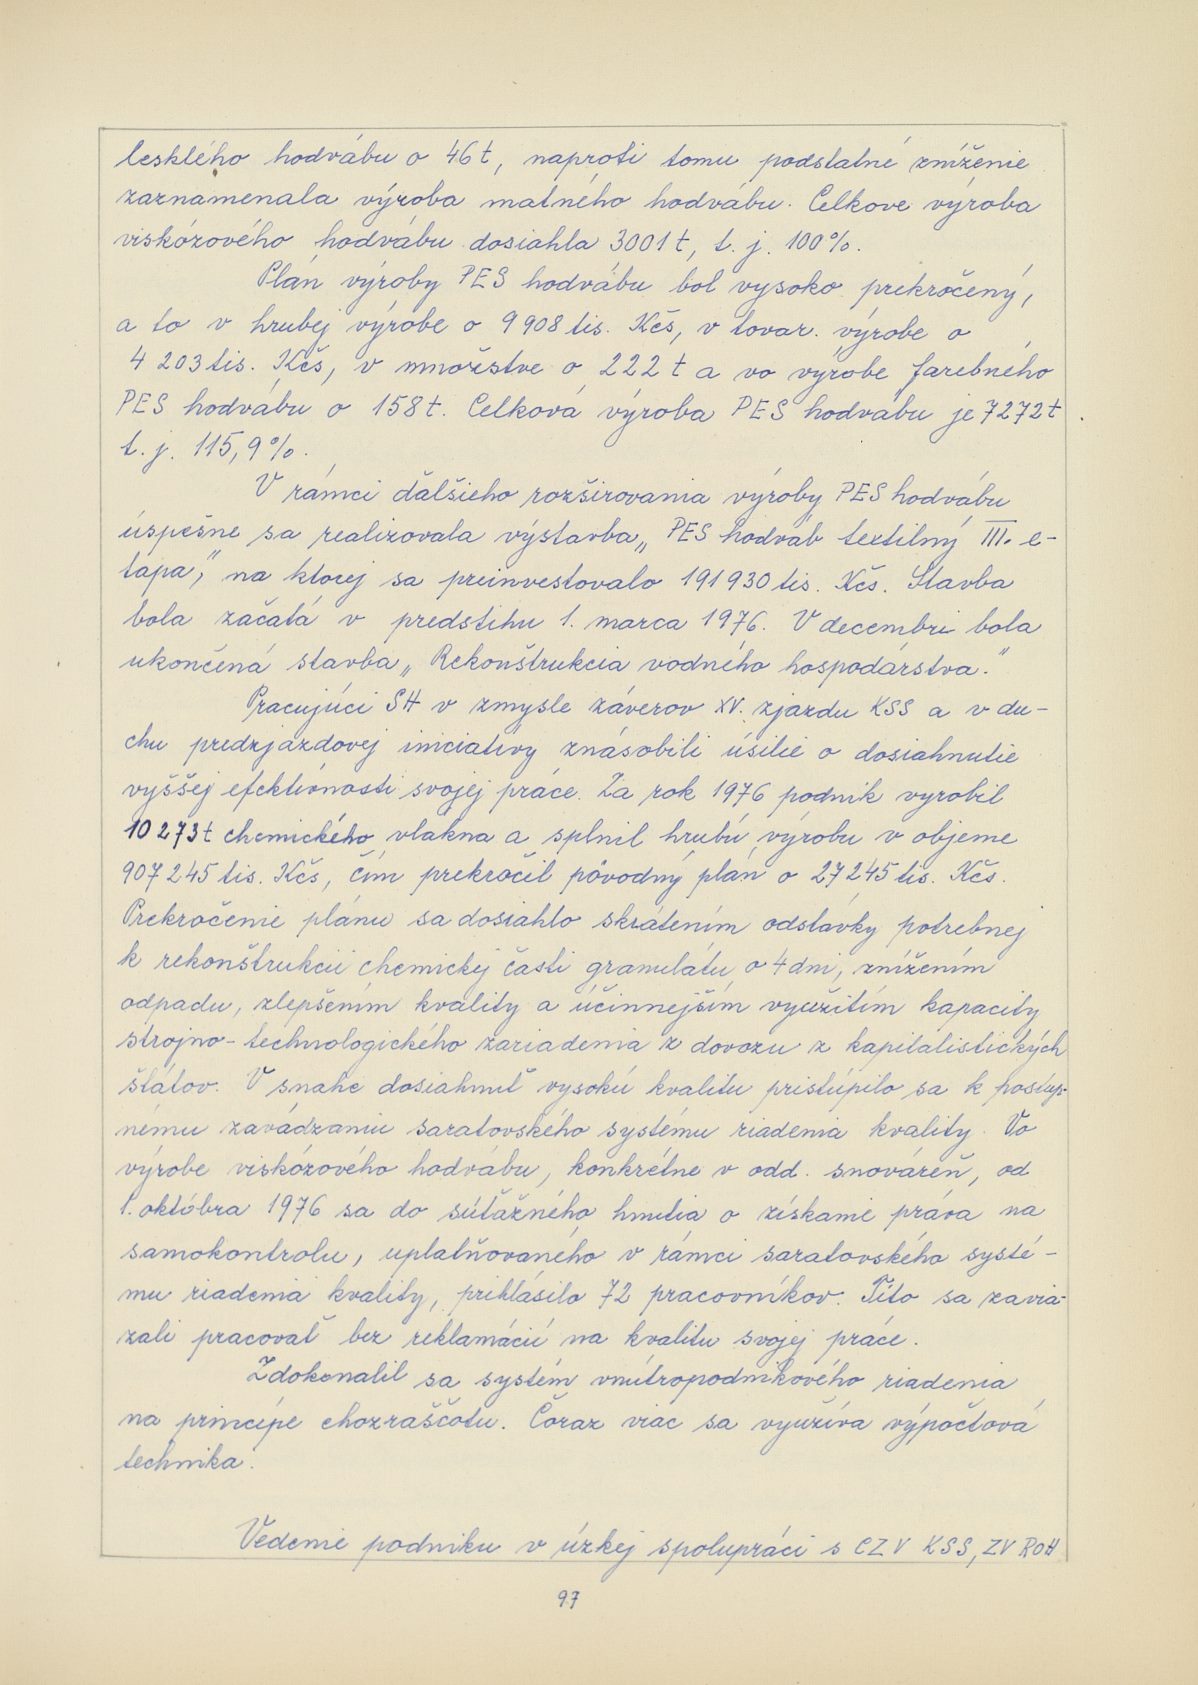 lesklého hodvábu o 46 t, naproti tomu podstatné zníženie
zaznamenala výroba matného hodvábu. Celkove výroba
viskózového hodvábu dosiahla 3001 t, t. j. 100%.
Plán výroby PES hodvábu bol vysoko prekročený,
a to v hrubej výrobe o 9 908 tis. Kčs, v tovar. výrobe o
4 203 tis. Kčs, v množstve o 222 t a vo výrobe farebného
PES hodvábu o 158 t. Celková výroba PES hodvábu je 7272 t
t. j. 115,9%.
V rámci ďalšieho rozširovania výroby PES hodvábu
úspešne sa realizovala výstavba „PES hodváb textilný III. e-
tapa", na ktorej sa preinvestovalo 191 930 tis. Kčs. Stavba
bola začatá v predstihu 1. marca 1976. V decembri bola
ukončená stavba „Rekonštrukcia vodného hospodárstva."
Pracujúci SH v zmysle záverov XV. zjazdu KSS a v du-
chu predzjazdovej iniciatívy znásobili úsilie o dosiahnutie
vyššej efektívnosti svojej práce. Za rok 1976 podnik vyrobil
10 273 t chemického vlákna a splnil hrubú výrobu v objeme
907 245 tis. Kčs, čím prekročil pôvodný plán o 27 245 tis. Kčs.
Prekročenie plánu sa dosiahlo skrátením odstávky potrebnej
k rekonštrukcii chemickej časti granulátu o 4 dni, znížením
odpadu, zlepšením kvality a účinnejším využitím kapacity
strojno-technologického zariadenia z dovozu z kapitalistických
štátov. V snahe dosiahnuť vysokú kvalitu pristúpilo sa k postup-
nému zavádzaniu saratovského systému riadenia kvality. Vo
výrobe viskózového hodvábu, konkrétne v odd. snováreň, od
1. októbra 1976 sa do súťažného hnutia o získanie práva na
samokontrolu, uplatňovaného v rámci saratovského systé-
mu riadenia kvality, prihlásilo 72 pracovníkov. Títo sa zavia-
zali pracovať bez reklamácií na kvalitu svojej práce.
Zdokonalil sa systém vnútropodnikového riadenia
na princípe chozraščotu. Čoraz viac sa využíva výpočtová
technika.
Vedenie podniku v úzkej spolupráci s CZV KSS, ZV ROH
97